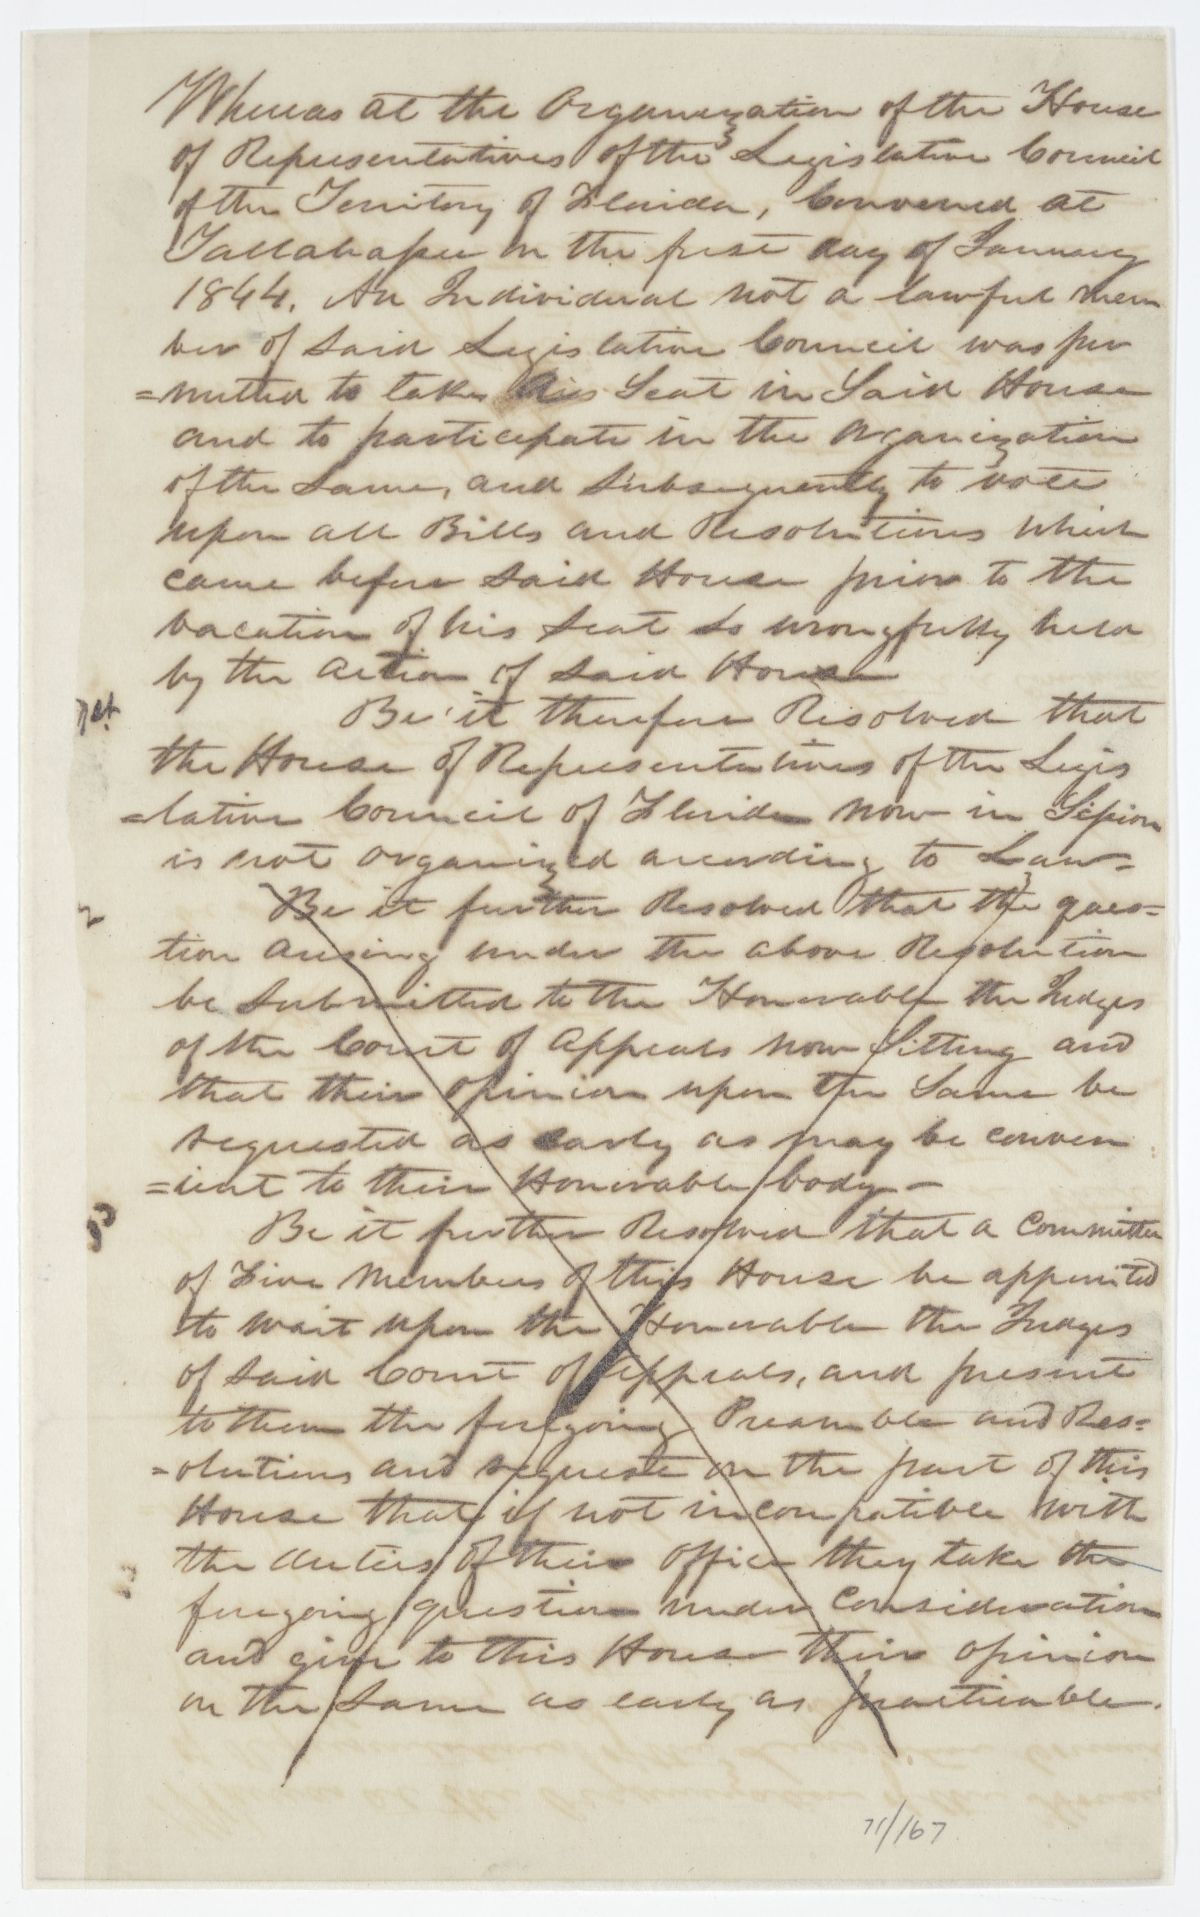 Whereas at the Organization of the House
of Representatives of the Legislative Council
of the Territory of Florida, Convened at
Tallahassee on the first day of January
1844. An Individual not a lawful mem
ber of said Legislative Council was per
=mitted to take his Seat in Said House
and to participate in the Organization
of the Same, and Subsequently to vote
upon all Bills and Resolutions which
came before said House prior to the
vacation of his Seat so wrongfully held
by the Action of said House
1st
Be it therefore Resolved that
the House of Representatives of the Legis
=lative Council of Florida now in Session
is not organized according to Law=
2
Be it further Resolved that the ques=
tion arising under the above Resolution
be Submitted to the Honorable the Judges
of the Court of Appeals now Sitting and
that their opinion upon the Same be
requested as early as may be conven
=ient to their Honorable body—
3
Be it further Resolved that a Committee
of Five Members of this House be appointed
to wait upon the Honorable the Judges
of said Court of Appeals, and present
to them the foregoing Preamble and Res=
=olutions and request on the part of this
House that if not incompatible with
the duties of their office they take the
foregoing question under Consideration
and give to this House their opinion
on the Same as early as practicable.
71/167